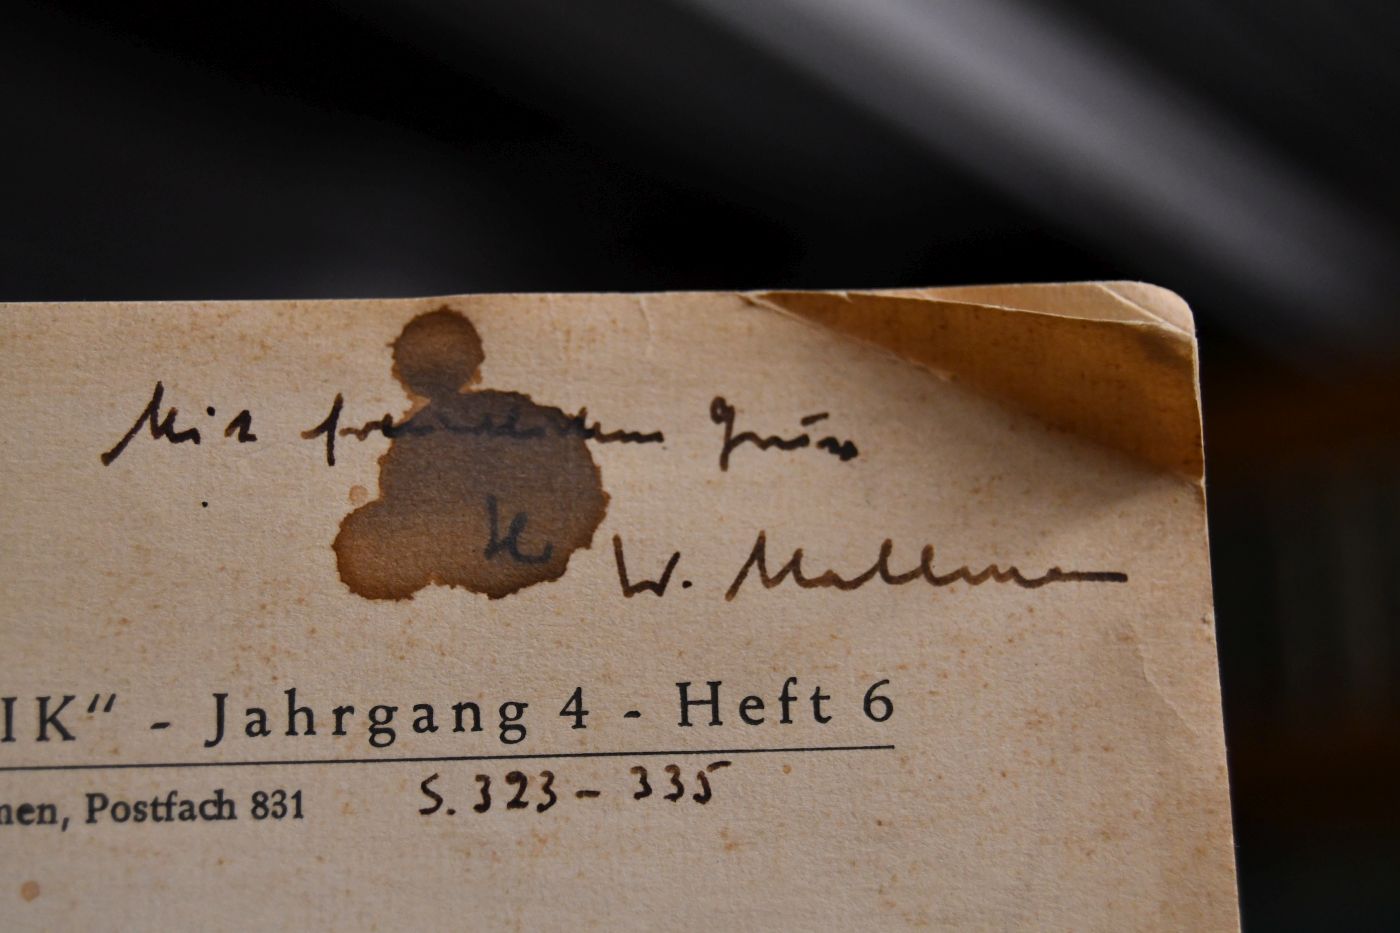 Mit freundlichem Gruss
W. Mallmann
IK“ - Jahrgang 4 - Heft 6
men, Postfach 831 S. 323 - 335